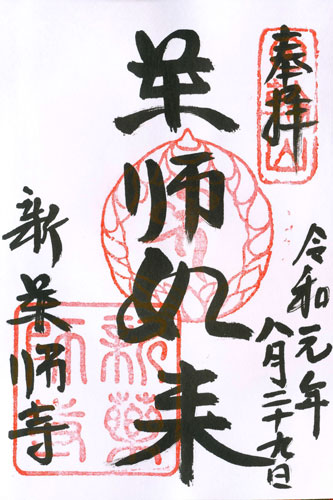 奉拝
令和元年
八月二十九日
薬師如来
新薬師寺
新藥
師寺